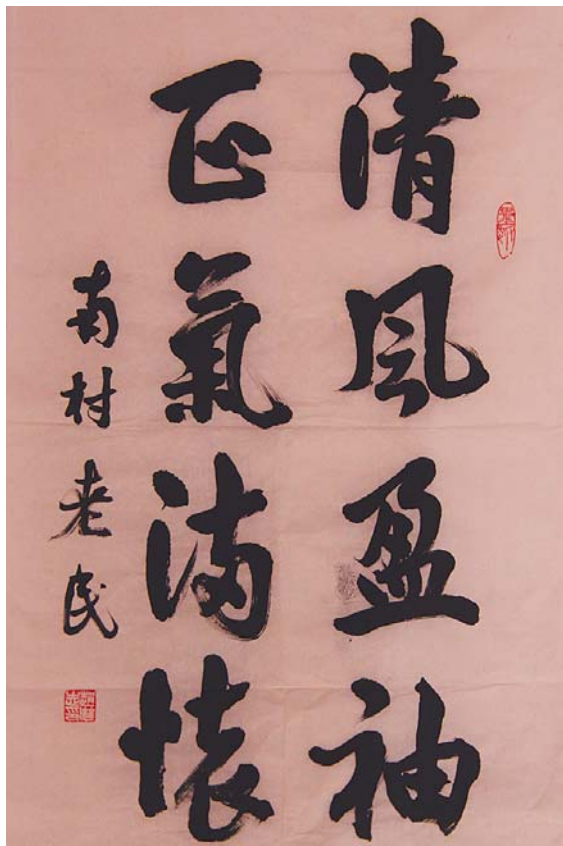 清风盈袖
正氣满懷
南村老民